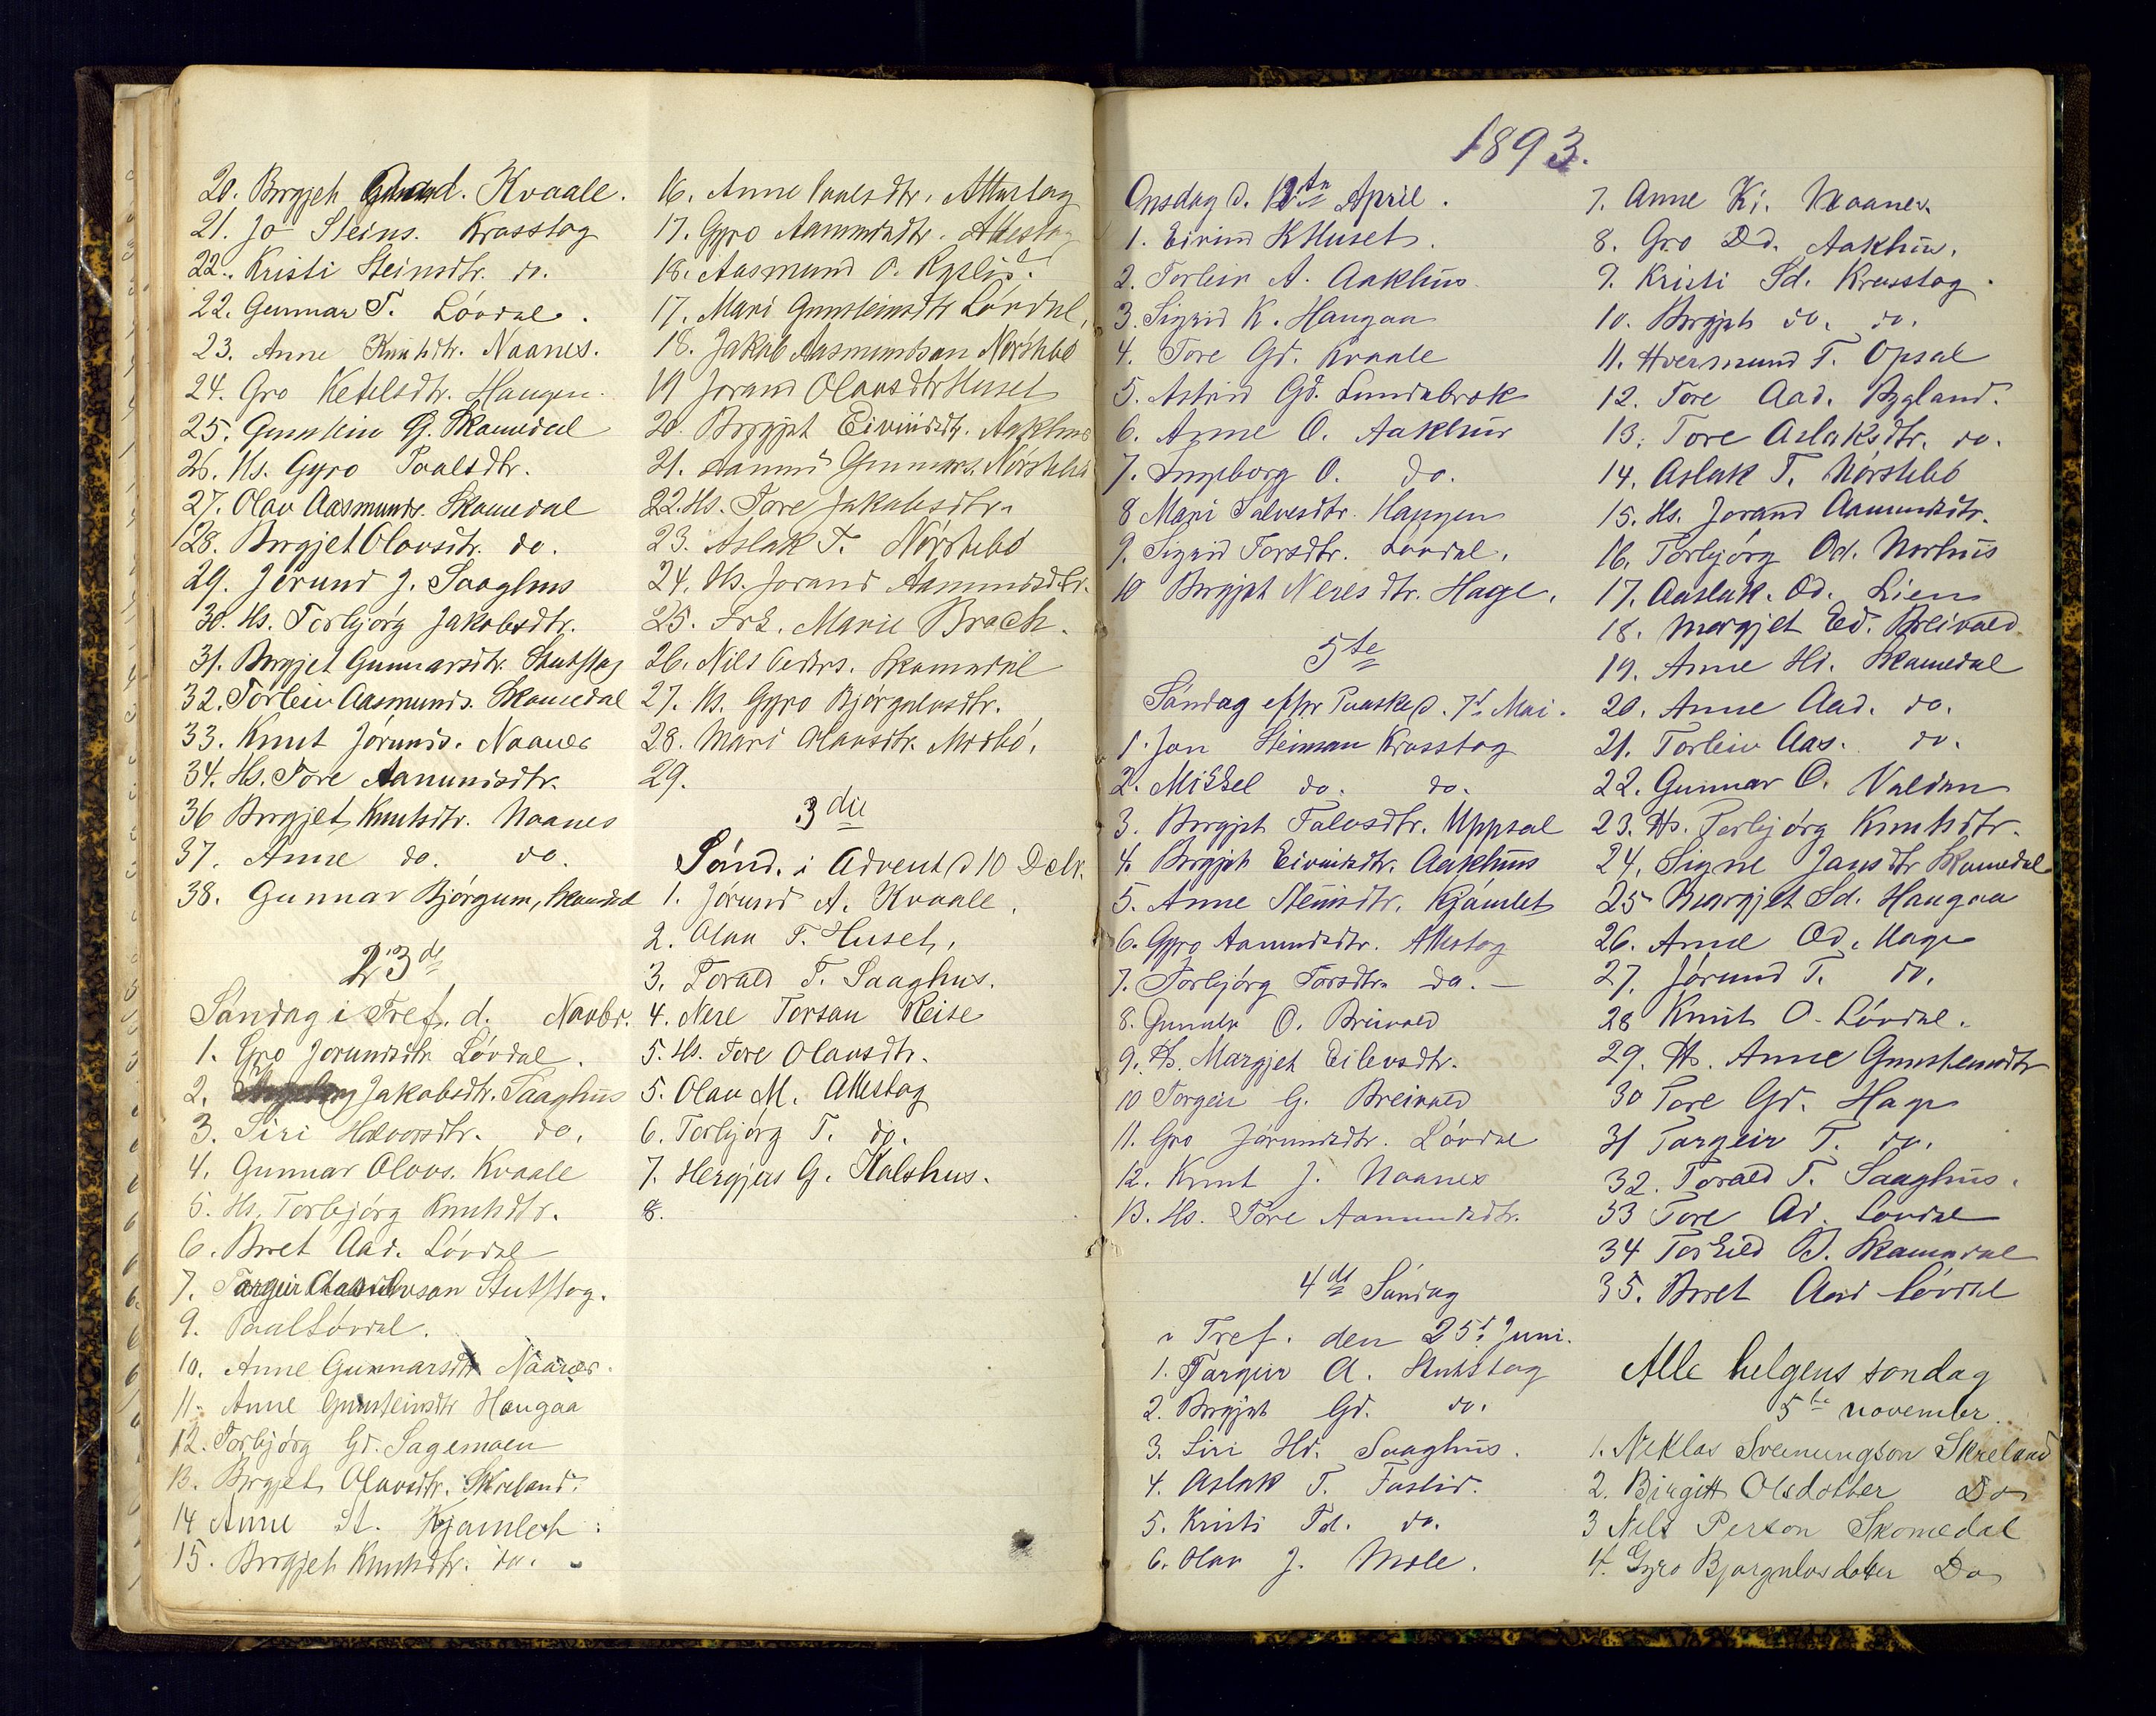 20. Borgjet Kvaale.
21. Jo Steins. Krosstog
22. Kristi Steinsdtr. do.
22. Gunnar T. Lövdal.
23. Anne Knutsdtr. Naanes.
24. Gro Ketelsdtr. Haugen.
25. Gunstein G. Skomedal
26. Hs. Gyro Paalsdtr.
27. Olav Aasmunds. Skomedal
28. Borgjet Olavsdtr. do.
29. Jörund J. Saaghus
30. Hs. Torbjörg Jakobsdtr.
31. Borgjet Gunnarsdtr. Stutstog
32. Torleiv Aasmunds. Skomedal
33. Knut Jörunds. Naanes
34. Hs. Tore Aamundsdtr.
36 Borgjet Knutsdtr. Naanes
37. Anne do. do.
38. Gunnar Björgum, Skomedal
23de
Söndag i Tref. d. Novbr.
1. Gro Jorundsdtr. Lövdal.
2. Jakobsdtr. Saaghus
3. Siri Halvorsdtr. do.
4. Gunnar Olavs. Kvaale
5. Hs. Torbjörg Knutsdtr.
6. Boret Aad. Lövdal
7. Targeir Stutstog.
9. Paal Lövdal.
10. Anne Gunnarsdtr Naanes.
11. Anne Gunsteinsdtr Haugaa
12. Torbjörg Gd. Sagemoen
13. Borgjet Olavsdtr. Skreland.
14 Anne St. Kjamlet
15. Borgjet Knutsdtr. do.
16. Anne Paalsdtr. Attestog
17. Gyro Aamundsdtr. Attestog
18. Aasmund O. Ryslid.
17. Mari Gunsteinsdtr Lövdal,
18. Jakob Aasmundsan Nörstebö
19 Jorand Olavsdtr Huset
20. Borgjet Eivindsdtr. Aakhus
21. Aamund Gunnars. Nörstebö
22. Hs. Tore Jakobsdtr.
23. Aslak T. Nörstebö
24. Hs. Jorand Aamundsdtr.
25. Frk. Marie Broch.
26. Nils Peders. Skomedal
27. Hs. Gyro Björgulvsdtr.
28. Mari Olavsdtr. Moibö.
29.
3die
Sönd. i Advent d 10 Dcbr.
1. Jörund A. Kvaale.
2. Olav T. Huset,
3. Torald T. Saaghus.
4. Nere Torsan Reise
5. Hs. Tore Olavsdtr.
5. Olav M. Attestog
6. Torbjörg T. do.
7. Hergjus G. Kalshus.
8.
1893.
Onsdag d. 12te April.
1. Eivind K Huset.
2. Torleiv A. Aakhus.
3. Sigrid K. Haugaa
4. Tore Gd. Kvaale
5. Astrid Gd. Lundebrok
6. Anne O. Aakhus
7. Ingeborg O. do.
8 Mari Salvesdtr. Haugen
9. Sigrid Torsdtr. Lövdal.
10 Borgjet Neresdtr. Hage.
5te
Söndag efter Paaske d. 7d Mai.
1. Jon Steinsan Krosstog
2. Mikkel do. do.
3. Borgjet Talevsdtr. Uppsal
4. Borgjet Eivindsdtr. Aakhus
5. Anne Steinsdtr. Kjámlet
6. Gyro Aamundsdtr. Attestog
7. Torbjörg Torsdtr. do. –
8. Gunnar O. Breivold
9. Hs. Margjet Eilevsdtr.
10 Torgeir G. Breivold
11. Gro Jörundsdtr. Lövdal
12. Knut J. Naanes
13. Hs. Tore Aamundsdtr.
4de Söndag
i Tref. den 25d Juni.
1. Targeir A. Stutstog
2. Borgjet Gd. do.
3. Siri Hd. Saaghus.
4. Aslak T. Faslid.
5. Kristi Td. do.
6. Olav J. Mole.
7. Anne Kd. Naanes.
8. Gro Dd. Aakhus.
9. Kristi Sd. Krosstog.
10. Borgjet do. do.
11. Hversmund T. Opsal
12. Tore Aad. Bygland.
13. Tore Aslaksdtr. do.
14. Aslak T. Nörstebö
15. Hs. Jorand Aamundsdtr.
16. Torbjörg Od. Norhus
17. Aaslak. Od. Lien
18. Margjet Ed. Breivold
19. Anne Hd. Skomedal
20. Anne Aad. do.
21. Torleiv Aas. do.
22. Gunnar O. Valdem
23. Hs. Torbjörg Knutsdtr.
24. Signe Jansdtr Skomedal
25 Margjet Sd. Haugaa
26. Anne Od. Hage
27. Jörund T. do.
28 Knut O. Lövdal.
29. Hs. Anne Gunsteinsdtr
30 Tore Gd. Hage
31 Targeir T. do.
32. Torald T. Saaghus.
33 Tore Ad. Lövdal
34 Torkild O. Skomedal
35. Boret Aad Lövdal
Alle helgens sondag
5te november.
1. Neklas Sveinungson Skreland
2. Birgitt Olsdotter Do
3 Nels Person Skomedal
4. Gyro Bjorgulvsdoter Do